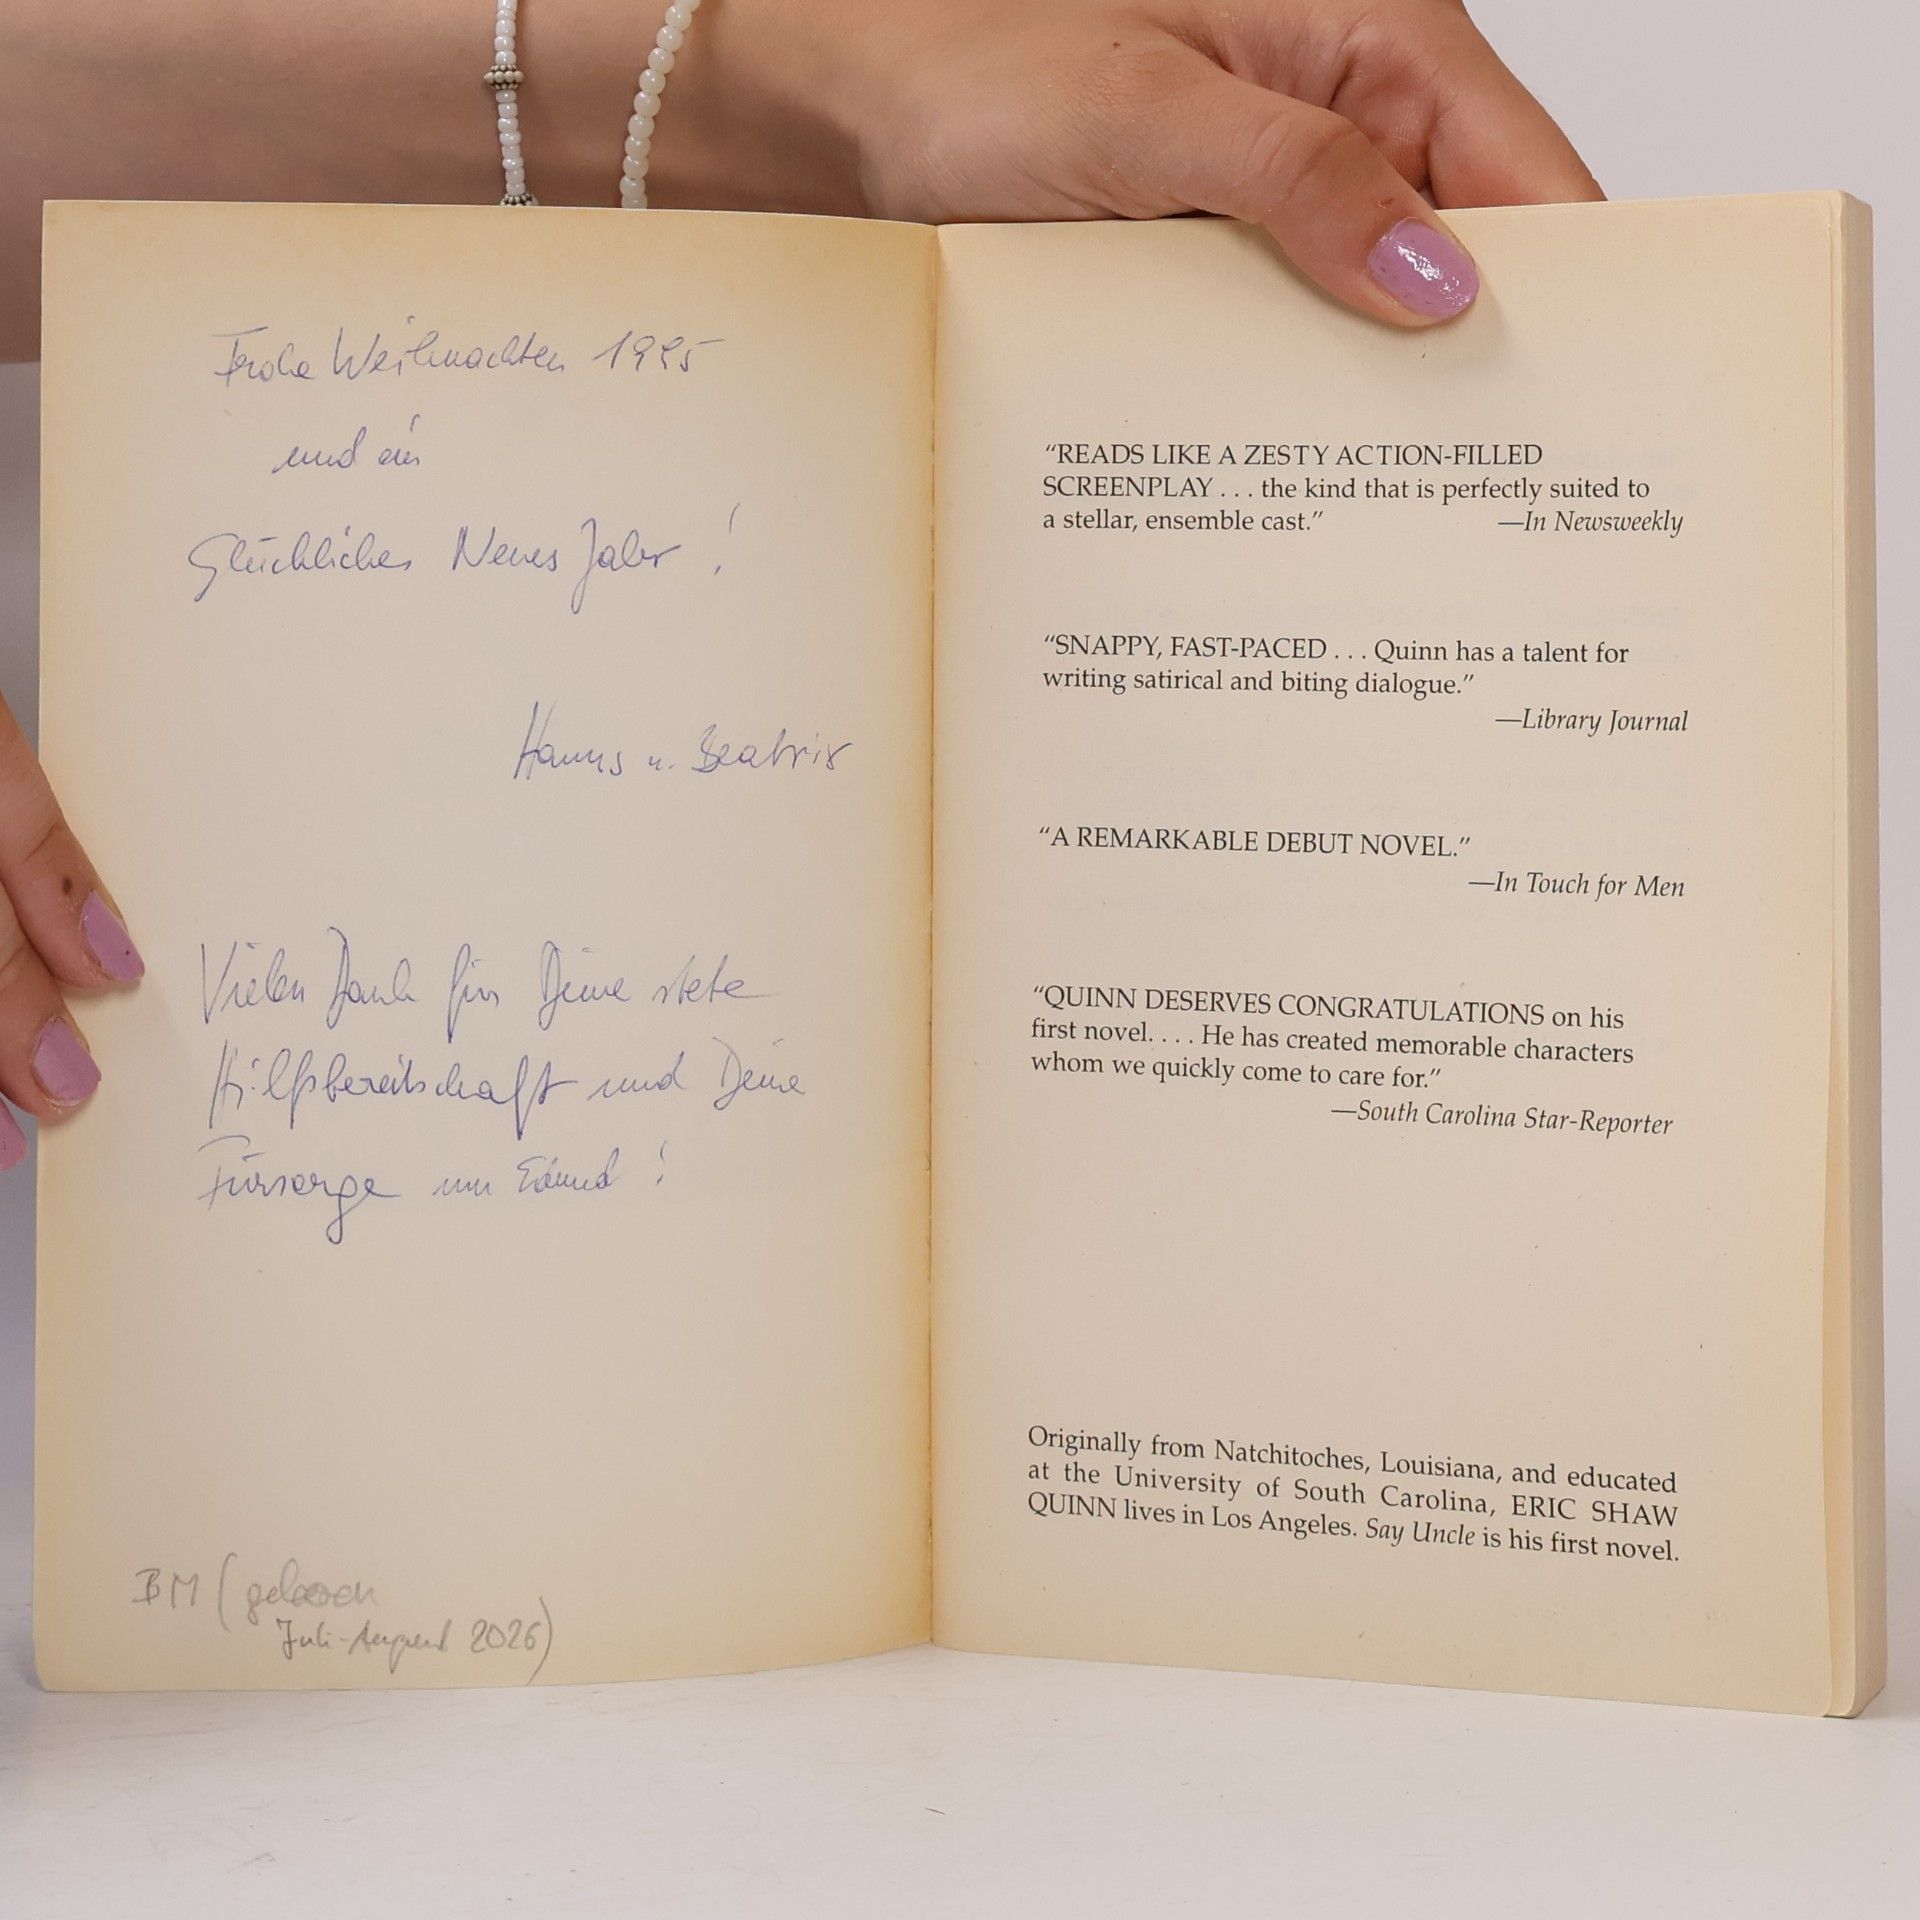 Frohe Weihnachten 1995
und ein
Glückliches Neues Jahr !
Hanns u. Beatrix
Vielen Dank für Deine stete
Hilfsbereitschaft und Deine
Fürsorge um Edmund !
BM (gelesen
Juli-August 2026)
“READS LIKE A ZESTY ACTION-FILLED
SCREENPLAY . . . the kind that is perfectly suited to
a stellar, ensemble cast.” —In Newsweekly
“SNAPPY, FAST-PACED . . . Quinn has a talent for
writing satirical and biting dialogue.”
—Library Journal
“A REMARKABLE DEBUT NOVEL.”
—In Touch for Men
“QUINN DESERVES CONGRATULATIONS on his
first novel. . . . He has created memorable characters
whom we quickly come to care for.”
—South Carolina Star-Reporter
Originally from Natchitoches, Louisiana, and educated
at the University of South Carolina, ERIC SHAW
QUINN lives in Los Angeles. Say Uncle is his first novel.